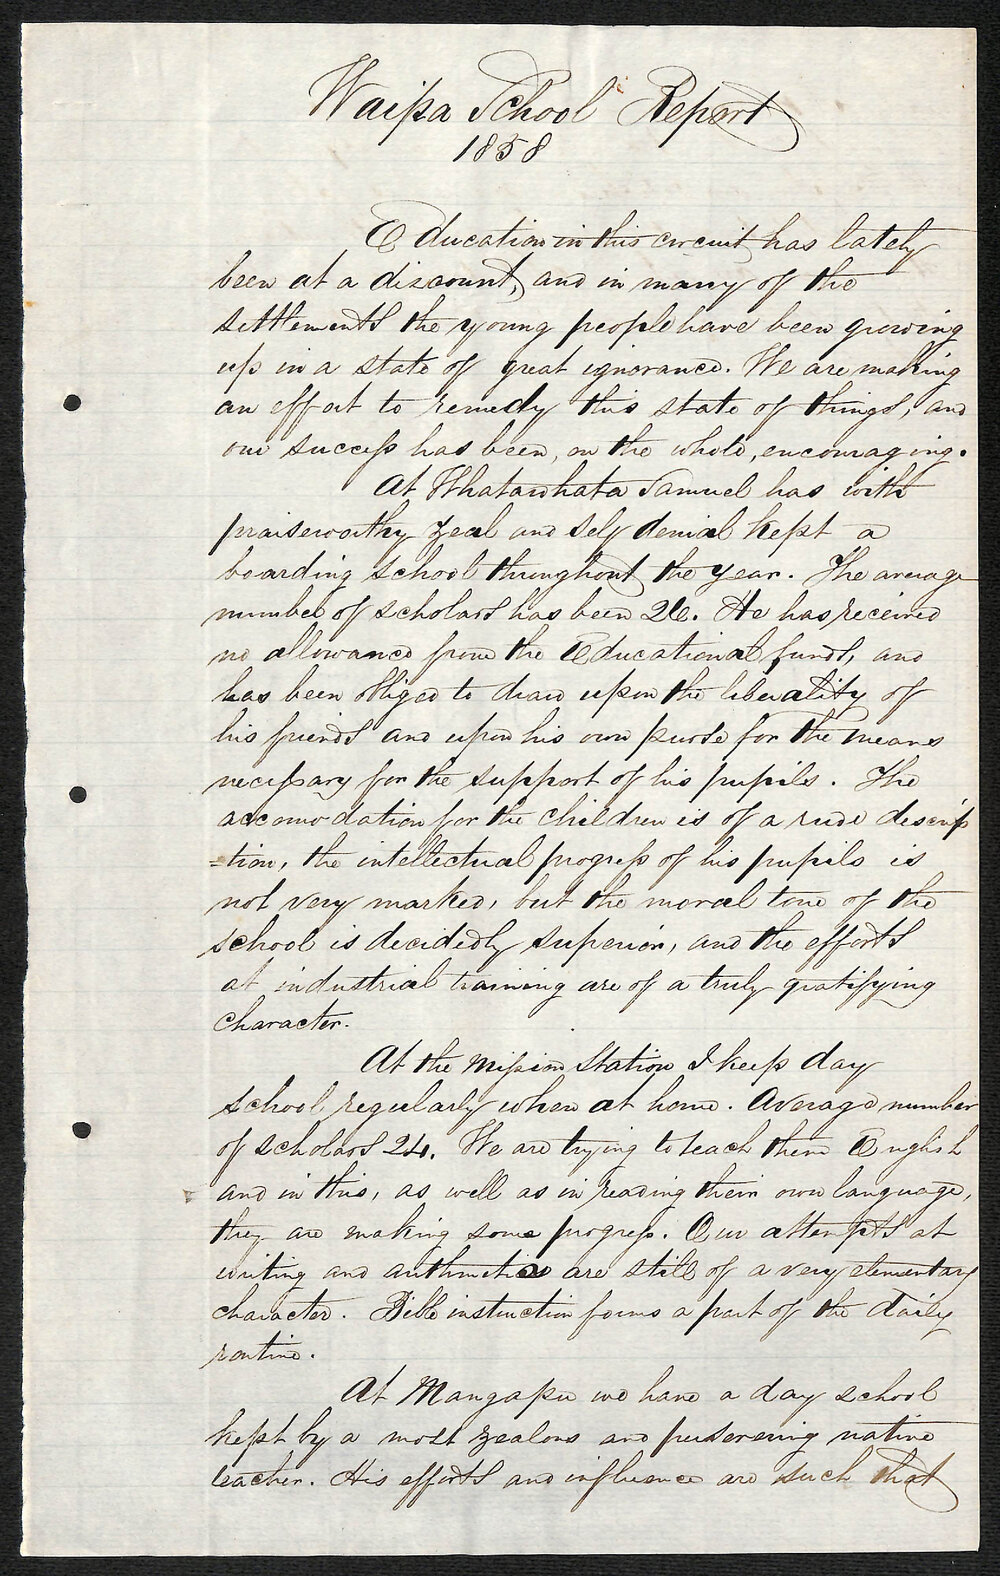 Waipa School Report
1858
Education in this circuit has lately
been at a discount, and in many of the
settlements the young people have been growing
up in a state of great ignorance. We are making
an effort to remedy this state of things, and
our success has been, on the whole, encouraging.
At Whatawhata Samuel has with
praiseworthy zeal and self denial kept a
boarding school throughout the year. The average
number of scholars has been 26. He has received
no allowance from the Educational funds, and
has been obliged to draw upon the liberality of
his friends and upon his own purse for the means
necessary for the support of his pupils. The
accomodation for the children is of a rude descrip
-tion, the intellectual progress of his pupils is
not very marked, but the moral tone of the
school is decidedly superior, and the efforts
at industrial training are of a truly gratifying
character.
At the Mission Station I keep day
school regularly when at home. Average number
of scholars 24. We are trying to teach them English
and in this, as well as in reading their own language,
they are making some progress. Our attempts at
writing and arithmetic are still of a very elementary
character. Bible instruction forms a part of the daily
routine.
At Mangapu we have a day school
kept by a most zealous and persevering native
teacher. His efforts and influence are such that